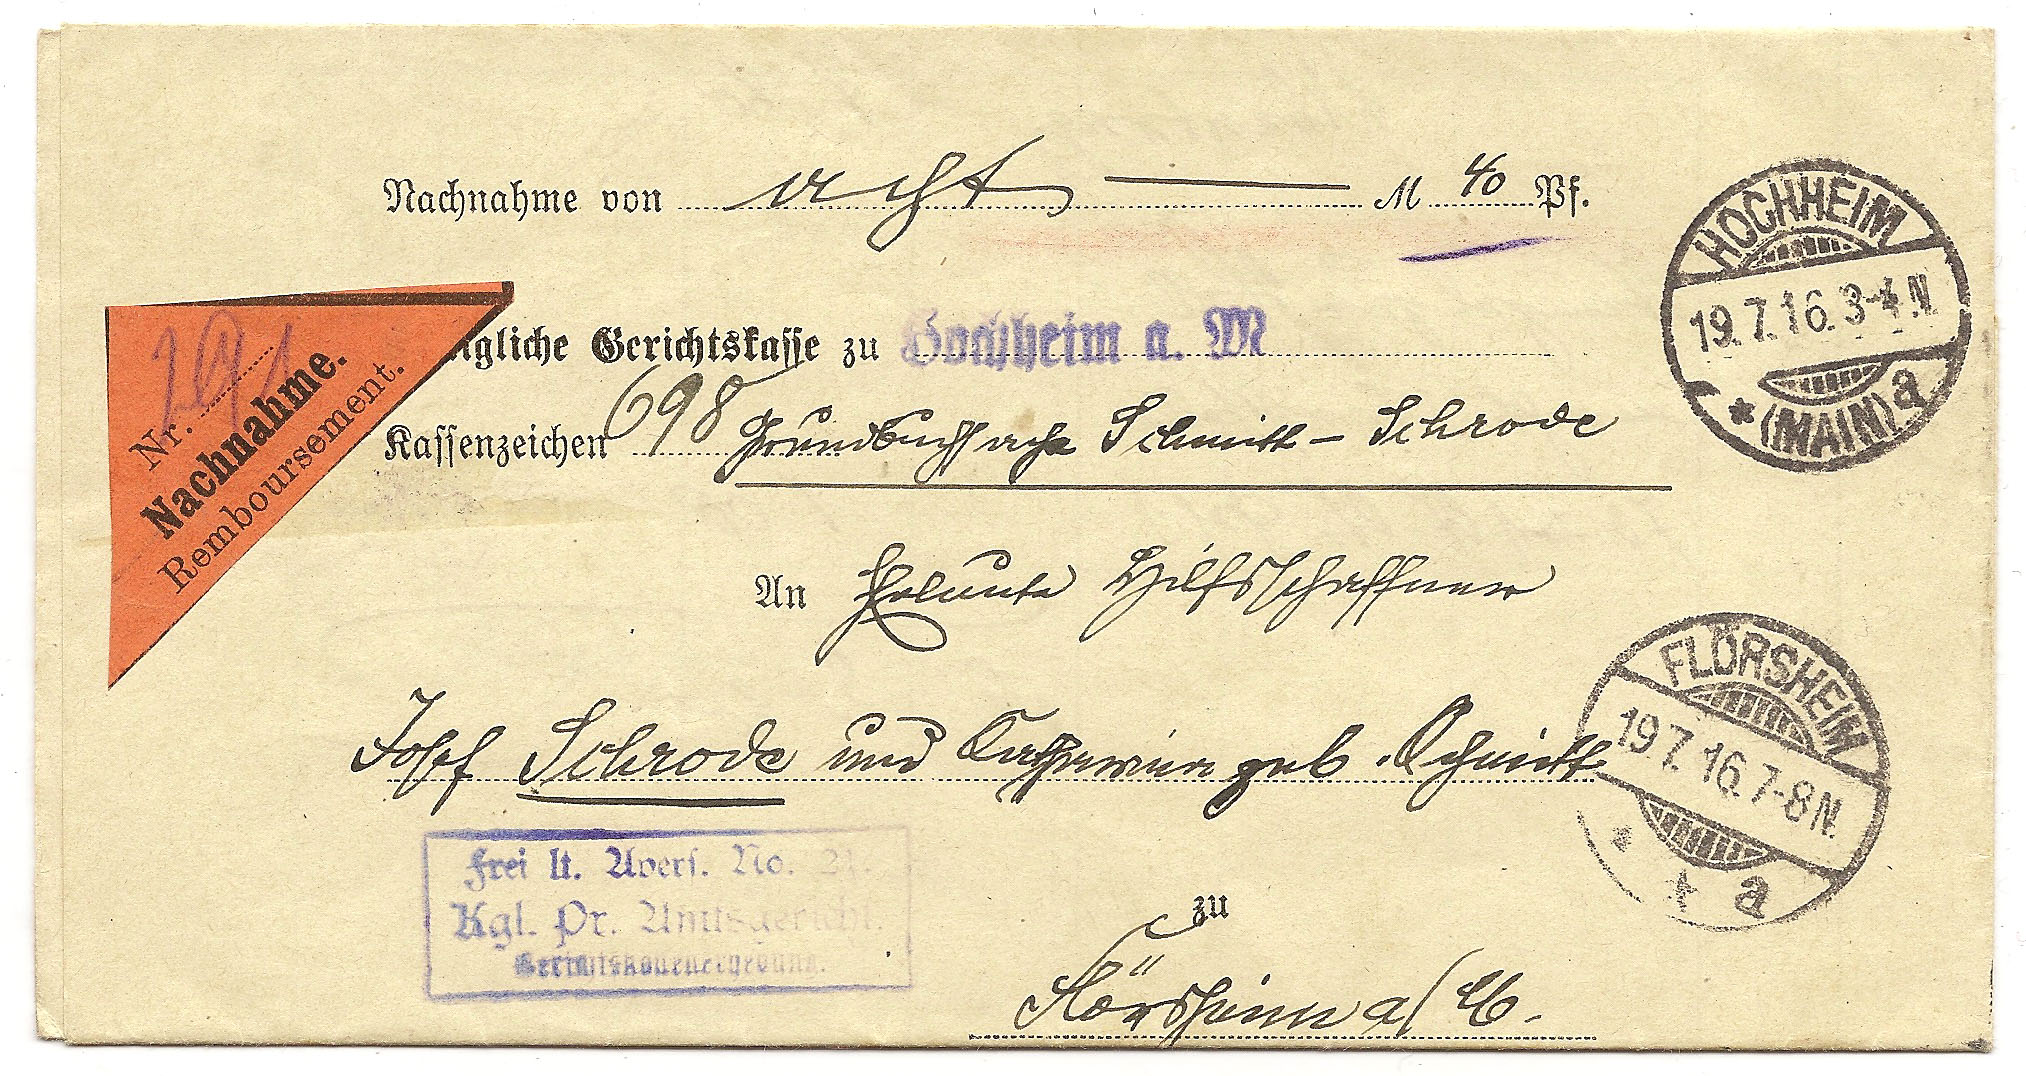 Nachnahme von acht — M 40 Pf.
Nr. 191
Nachnahme.
Remboursement.
igliche Gerichtskasse zu Hochheim a. M
Kassenzeichen 698 Grundbuchsache Schmitt – Schrode
HOCHHEIM
19.7.16. 3-4 N.
* (MAIN) a
An Eheleute Hilfsschaffner
Josef Schrode und Katharina geb. Schmitt
FLÖRSHEIM
19.7.16. 7-8 N.
* * a
Frei lt. Avers. No. 21.
Kgl. Pr. Amtsgericht.
zu
Flörsheim a/M.